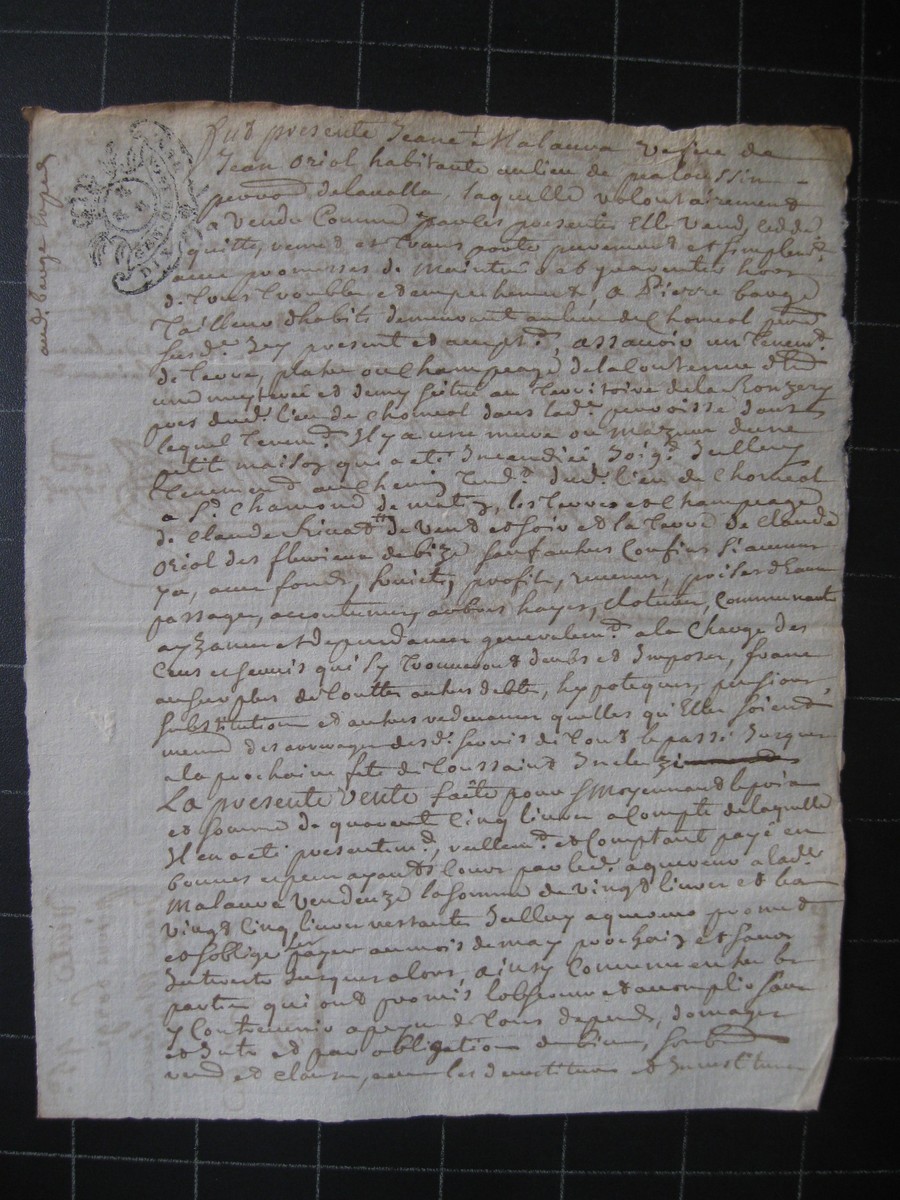 fut presente Jeanne Malaura vefve de
Jean oriol habitante au lieu de pealoussin
parroisse delavalla, laquelle volontairement
a vendu Comme par les presentes Elle vend, cedde
quitte, remet et transporte purement et simplemt.
avec promesses de maintenir et garentir hors
de tous trouble et empechement, a Pierre barge
Tailleur dhabits demeurant au lieu de Chomiol
Icy present et accept.t, assavoir un tenemt.
de terre, plature ou Champeage de la Contenue d'
une meyterée et demy sittué au Territoire de la Ronzery
pres dud. lieu de Chomiol dans lad.e parroisse dans
lequel tenemt. Il y a une mure ou mazure dune
petite maison qui a eté Incendiée Joigt. Icelluy
tenement au Chemin tendt. dud. lieu de Chomiol
a St. Chamond de matin, les terres et Champeage
de Claude de vent et soir et la terre de Claude
oriol des fleurieux de bize sauf autres Confins si aucuns
y a, avec fonds, fruicts, profits, revenus, prises d'Eaux
passages accoutumez arbres hayes, clotures, communautés
ayzances et dependances generalemt. a la Charge des
Cens et servis qui s'y trouveront deubs et Imposez, franc
au surplus de touttes autres debtes, hypoteques, pensions,
substitution et autres redevances quelles qu'Elles soient
meme des arrerages desd. servis de tout le passé Jusques
a la prochaine fete de Toussaints Incluzi
La presente vente faite pour & moyennant le prix
et somme de quarente Cinq livres a Compte de laquelle
Il en a eté presentemt. reellemt. et Comptant payé en
bonnes especes ayants Cours par led. aquereur a lad.e
Malaura Vendeuze la somme de vingt livres et les
vingt Cinq livres restantes Icelluy aquereur promet
et soblige payer au mois de may prochain et sans
Interets Jusques alors, ainsy Convenu entre les
parties qui ont promis lobserver et accomplir sans
y Contrevenir a peyne de tous depends, domages
et Interets et par obligation de biens, soubmissions
renont. et clauses, avec les devestitures et Investitures
aud. barge